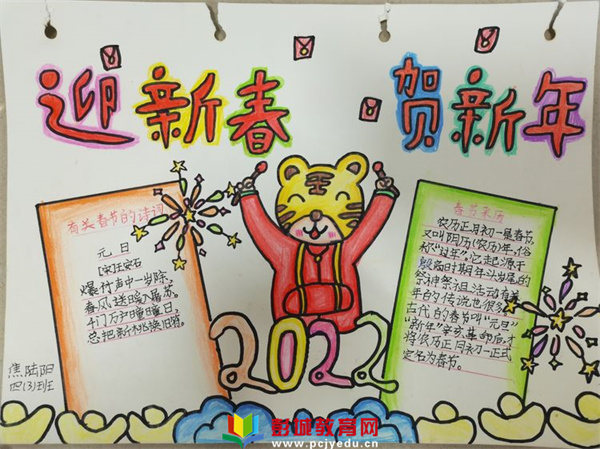 迎新春 贺新年
有关春节的诗词
元日
[宋]王安石
爆竹声中一岁除,
春风送暖入屠苏。
千门万户曈曈日,
总把新桃换旧符。
王
春节来历
农历正月初一是春节,
又叫阴历(农历)年,俗
称“过年”。它起源于
殷商时期年头岁尾的
祭神祭祖活动有
年的传说也很多
古代的春节叫“元日”
“新年”辛亥革命后,才
将农历正月初一正式
定名为春节。
2022
焦陆阳
四(3)班
彭城教育网
www.pcjyedu.cn